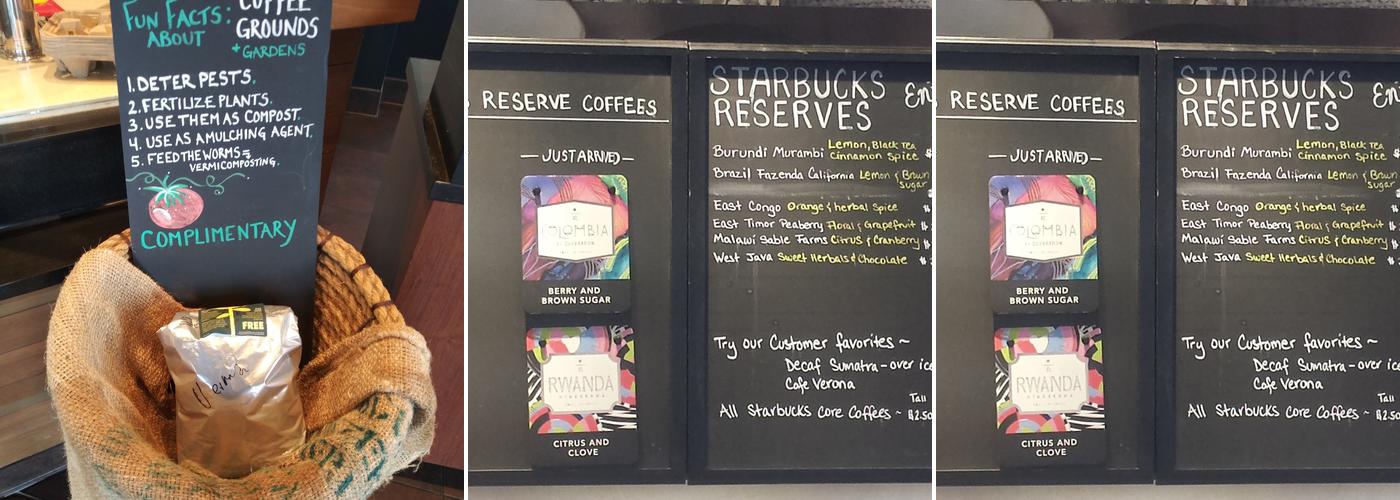 FUN FACTS: COFFEE
ABOUT GROUNDS
+ GARDENS
1. DETER PESTS.
2. FERTILIZE PLANTS.
3. USE THEM AS COMPOST.
4. USE AS A MULCHING AGENT.
5. FEED THE WORMS =
VERMICOMPOSTING.
COMPLIMENTARY
FREE
RESERVE COFFEES
— JUST ARRIVED —
COLOMBIA
BERRY AND
BROWN SUGAR
RWANDA
CITRUS AND
CLOVE
STARBUCKS
RESERVES
Burundi Murambi Lemon, Black Tea
Cinnamon Spice $
Brazil Fazenda California Lemon & Brown
Sugar
East Congo Orange & herbal Spice
East Timor Peaberry Floral & Grapefruit
Malawi Sable Farms Citrus & Cranberry
West Java Sweet Herbals & Chocolate $
Try our Customer favorites ~
Decaf Sumatra - over ice
Cafe Verona
Tall
All Starbucks Core Coffees ~ $2.50
RESERVE COFFEES
— JUST ARRIVED —
COLOMBIA
BERRY AND
BROWN SUGAR
RWANDA
CITRUS AND
CLOVE
STARBUCKS
RESERVES
Burundi Murambi Lemon, Black Tea
Cinnamon Spice $
Brazil Fazenda California Lemon & Brown
Sugar
East Congo Orange & herbal Spice
East Timor Peaberry Floral & Grapefruit
Malawi Sable Farms Citrus & Cranberry
West Java Sweet Herbals & Chocolate $
Try our Customer favorites ~
Decaf Sumatra - over ice
Cafe Verona
Tall
All Starbucks Core Coffees ~ $2.50